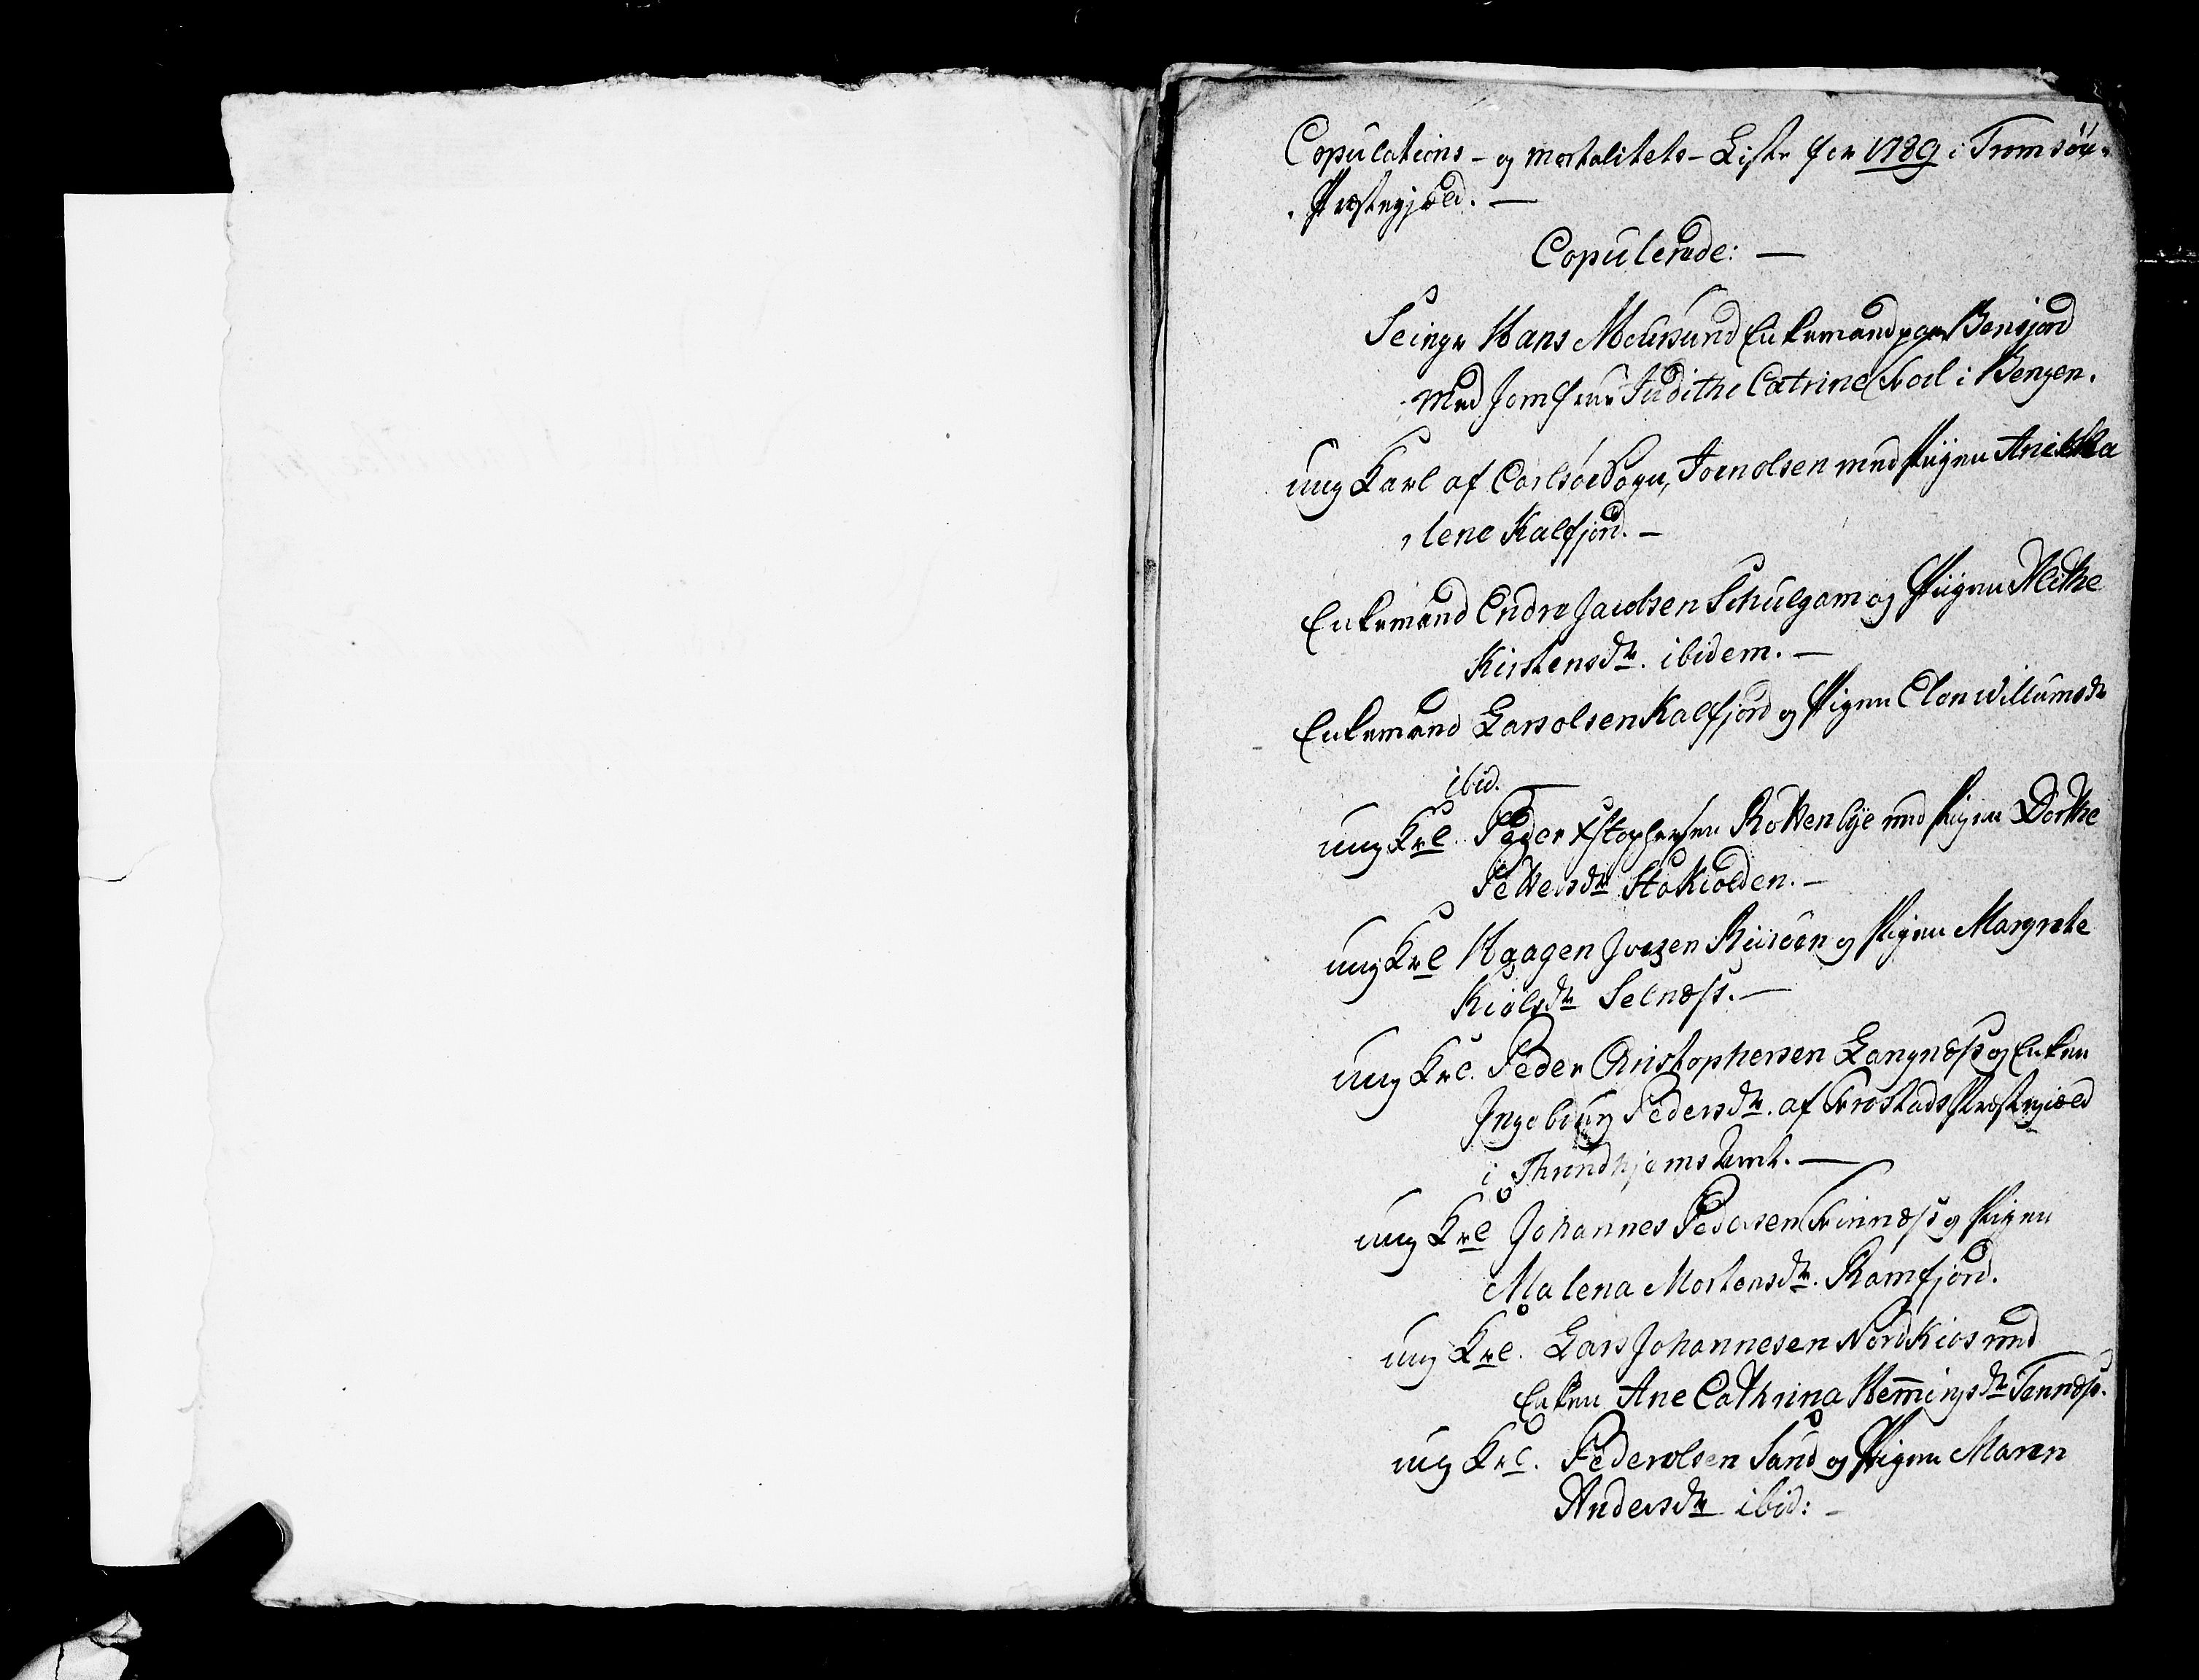 Copulations- og mortalitets-Liste for 1789 i Tromsöe-
Præstegjæld. —
Copulerede: —
Seingr Hans Meursund Enkemand paa Bensjord
med Jomfrue Judithe Catrine Krol i Bergen.
ung Karl af Carlsöe Sogn, Joen olsen med Pigen Anickka
lene Kalfjord. —
Enkemand Endre Jacobsen Schulgam og Pigen Alethe
Kirstensdtr. ibidem. —
Enkemand Lars olsen Kalfjord og Pigen Elen Willumsdr
ibid. —
ung Krl. Peder Xstophersen Rottenbye med Pigen Dorthe
Pettersdtr Stokiolden. —
ung Krl Haagen Joensen Reisöen og Pigen Margrete
Kiølsdtr Selnæss. —
ung Krl. Peder Christophersen Langnæss og Enken
Ingebiurg Pedersdtr. af Frostads Præstegiæld
i Thrundhjems Amt. —
ung Krl Johannes Pedersen Finnæss og Pigen
Malena Mortensdtr. Ramfjord.
ung Krl. Lars Johannesen Nordkios med
Enken Ane Cathrina Hemingsdtr Tennæss.
ung Krl. Peder olsen Sand og Pigen Maren
Andersdtr ibid: —